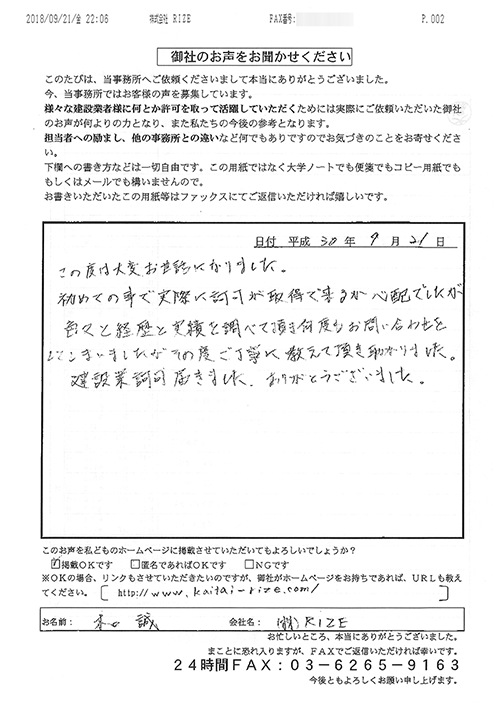 2018/09/21/金 22:06 株式会社 RIZE FAX番号: P.002
御社のお声をお聞かせください
このたびは、当事務所へご依頼くださいまして本当にありがとうございました。
今、当事務所ではお客様の声を募集しています。
様々な建設業者様に何とか許可を取って活躍していただくためには実際にご依頼いただいた御社
のお声が何よりの力となり、また私たちの今後の参考となります。
担当者への励まし、他の事務所との違いなど何でもありですのでお気づきのことをお寄せくださ
い。
下欄への書き方などは一切自由です。この用紙ではなく大学ノートでも便箋でもコピー用紙でも
もしくはメールでも構いませんので。
お書きいただいたこの用紙等はファックスにてご返信いただければ嬉しいです。
日付 平成 30 年 9 月 21 日
この度は大変お世話になりました。
初めての事で実際に許可が取得で来るか心配でしたが
色々と経歴と実績を調べて頂き何度もお問い合わせを
してしまいましたがその度ご丁寧に教えて頂き助かりました。
建設業許可届きました、ありがとうございました。
このお声を私どものホームページに掲載させていただいてもよろしいでしょうか？
☑掲載OKです □匿名であればOKです □NGです
※OKの場合、リンクもさせていただきたいのですが、御社がホームページをお持ちであれば、URLも教え
てください。〔 http://www.kaitai-rize.com/ 〕
お名前： 誠 会社名： (株)RIZE
お忙しいところ、本当にありがとうございました。
まことに恐れ入りますが、FAXでご返信いただければ幸いです。
24時間FAX：03-6265-9163
今後ともよろしくお願い申し上げます。